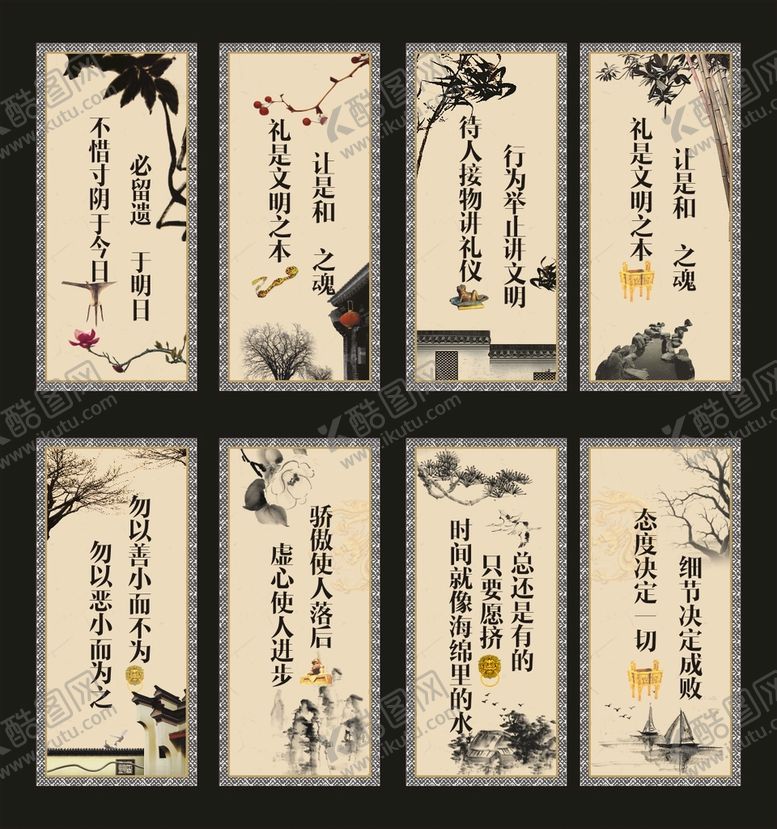 不惜寸阴于今日
必留遗 于明日
礼是文明之本
让是和 之魂
待人接物讲礼仪
行为举止讲文明
礼是文明之本
让是和 之魂
勿以善小而不为
勿以恶小而为之
骄傲使人落后
虚心使人进步
时间就像海绵里的水
只要愿挤
总还是有的
态度决定一切
细节决定成败
酷图网
ikutu.com